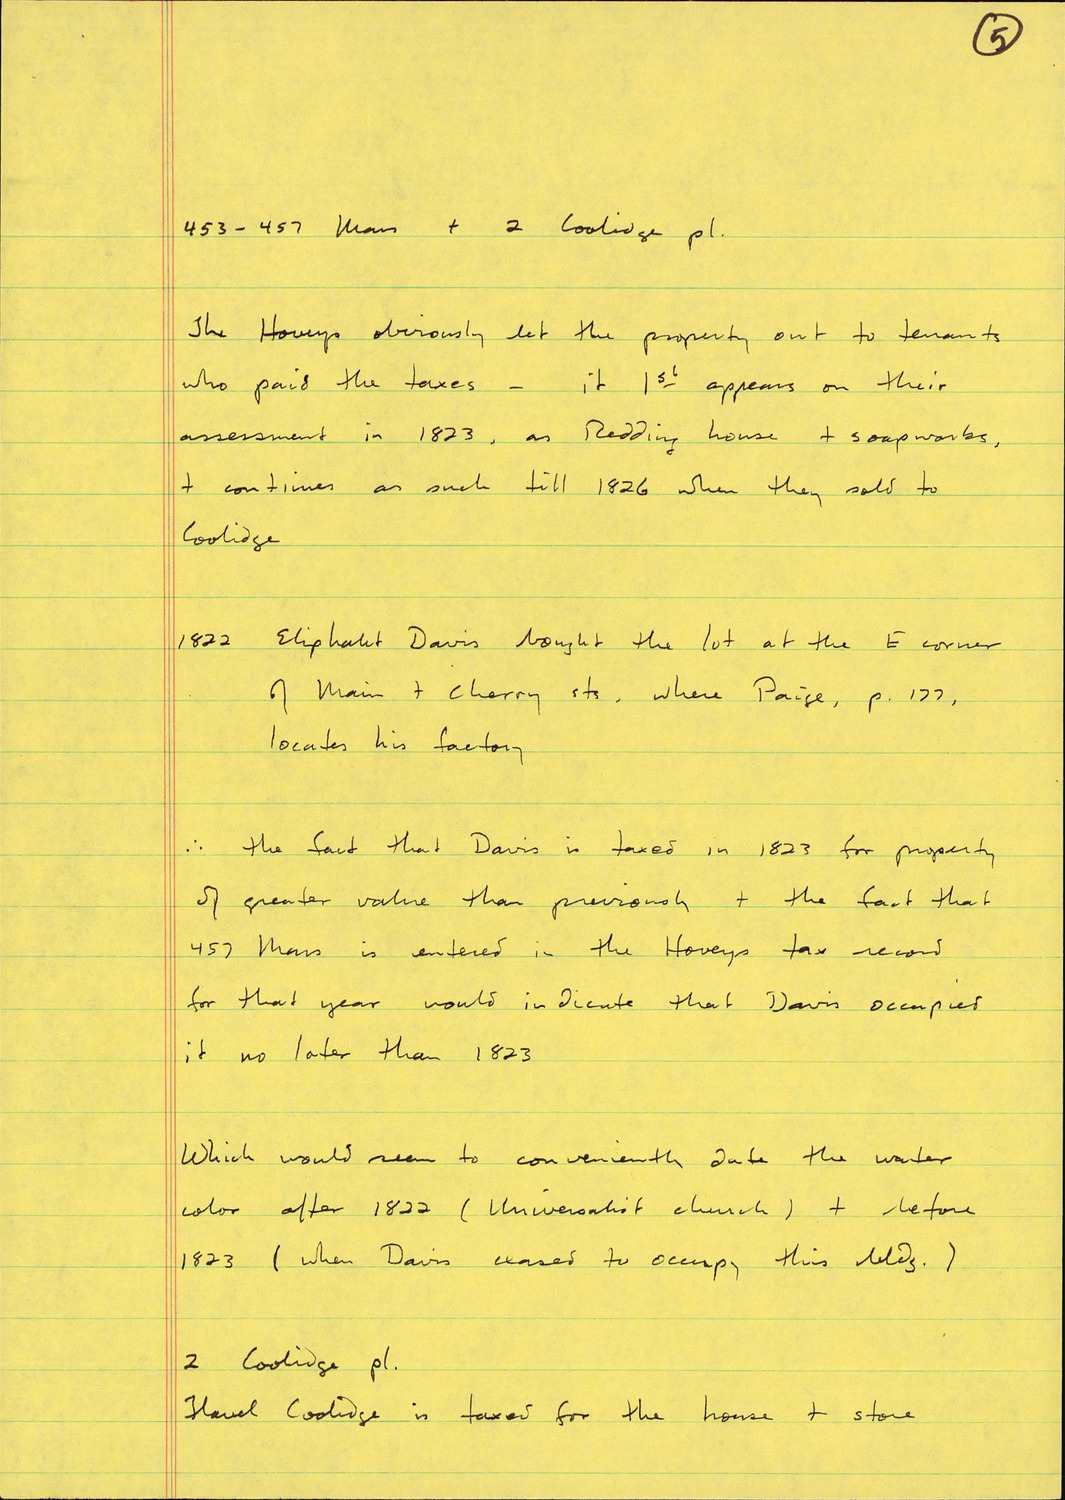 5
453-457 Mass + 2 Coolidge pl.
The Hoveys obviously let the property out to tenants
who paid the taxes - it 1st appears on their
assessment in 1823, as Redding house + soapworks,
+ continues as such till 1826 when they sold to
Coolidge
1822 Eliphalet Davis bought the lot at the E corner
of Main + Cherry sts, where Paige, p. 177,
locates his factory
∴ the fact that Davis is taxed in 1823 for property
of greater value than previously + the fact that
457 Mass is entered in the Hoveys tax record
for that year would indicate that Davis occupied
it no later than 1823
Which would seem to conveniently date the water
color after 1822 (Universalist church) + before
1823 (when Davis ceased to occupy this bldg.)
2 Coolidge pl.
Flavel Coolidge is taxed for the house + store